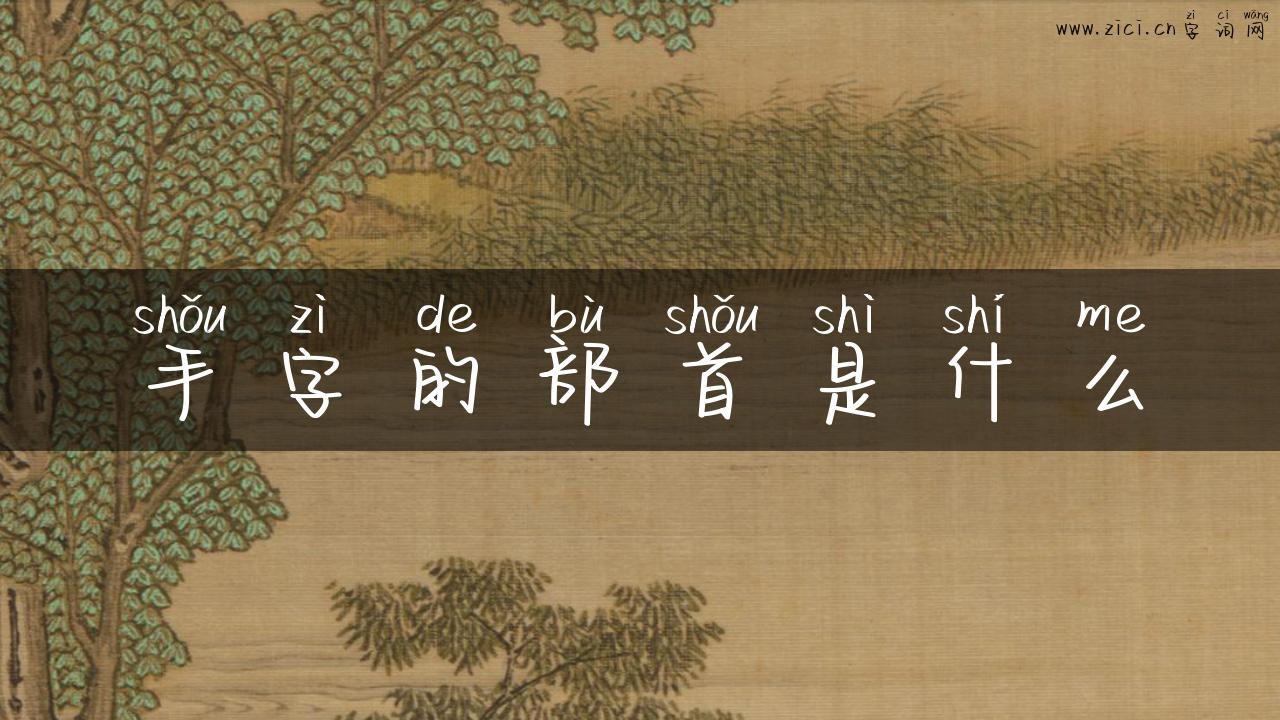 zì cí wǎng
www.zici.cn字词网
shǒu zì de bù shǒu shì shí me
手字的部首是什么